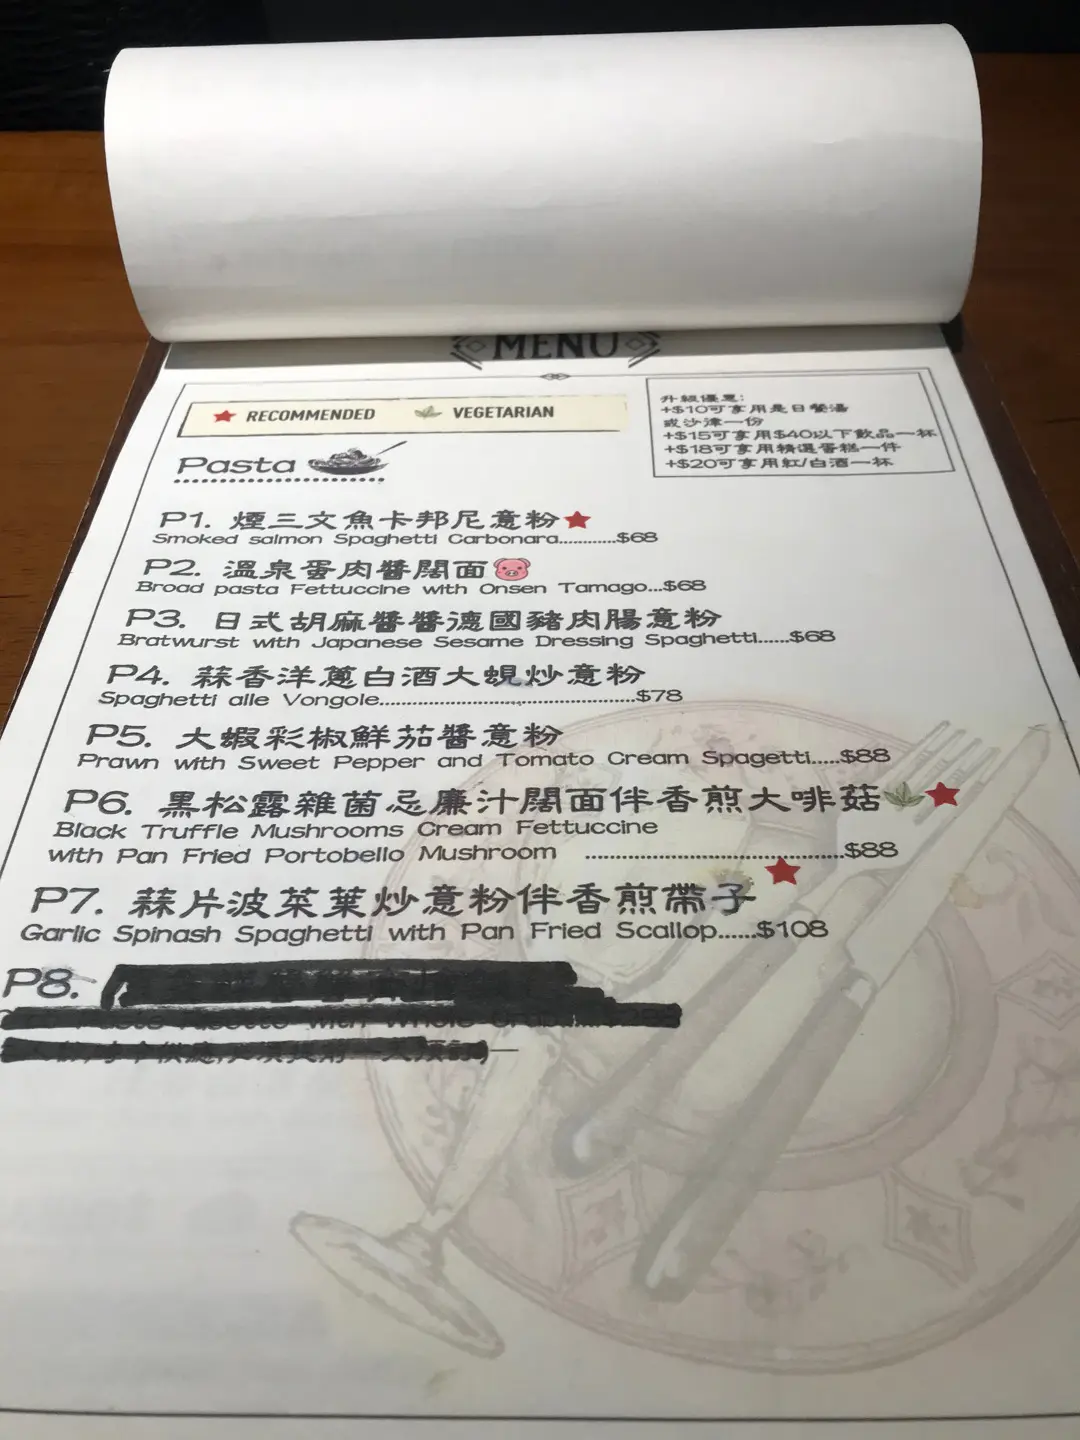 MENU
RECOMMENDED VEGETARIAN
升級優惠:
+$10可享用是日餐湯
或沙津一份
+$15可享用$40以下飲品一杯
+$18可享用精選蛋糕一件
+$20可享用紅/白酒一杯
Pasta
P1. 煙三文魚卡邦尼意粉
Smoked salmon Spaghetti Carbonara............$68
P2. 溫泉蛋肉醬闊面
Broad pasta Fettuccine with Onsen Tamago...$68
P3. 日式胡麻醬醬德國豬肉腸意粉
Bratwurst with Japanese Sesame Dressing Spaghetti......$68
P4. 蒜香洋蔥白酒大蜆炒意粉
Spaghetti alle Vongole.......................................$78
P5. 大蝦彩椒鮮茄醬意粉
Prawn with Sweet Pepper and Tomato Cream Spagetti.....$88
P6. 黑松露雜菌忌廉汁闊面伴香煎大啡菇
Black Truffle Mushrooms Cream Fettuccine
with Pan Fried Portobello Mushroom .......................................$88
P7. 蒜片波菜葉炒意粉伴香煎帶子
Garlic Spinash Spaghetti with Pan Fried Scallop......$108
P8.
with Whole